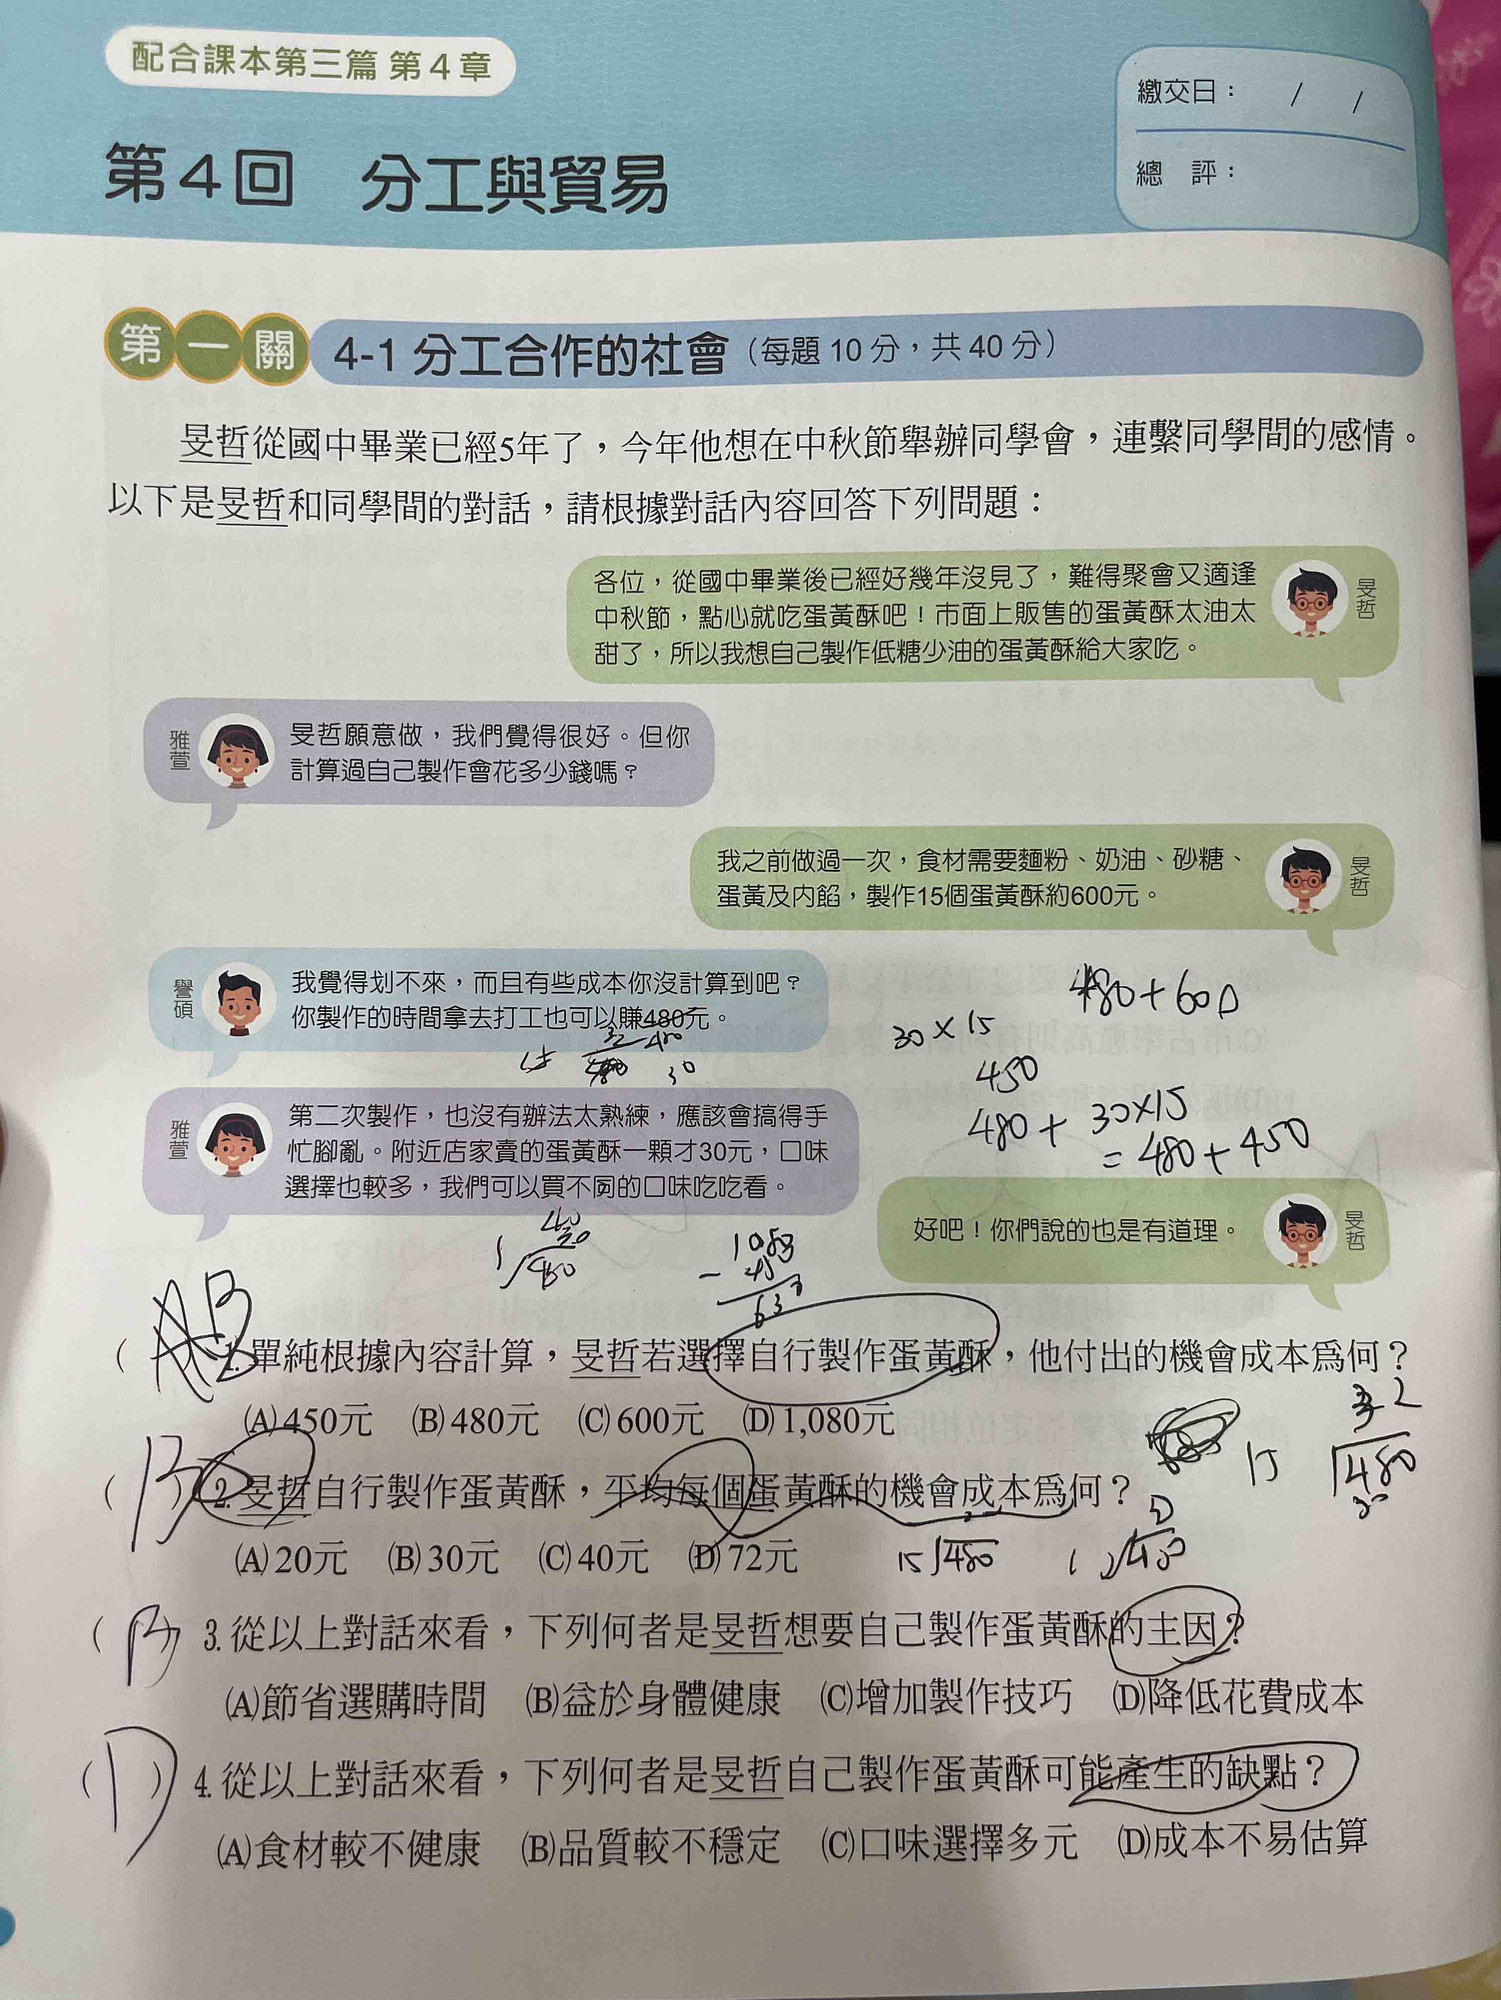 配合課本第三篇 第4章
繳交日： / /
總 評：
第4回 分工與貿易
第一關 4-1 分工合作的社會（每題10分，共40分）
旻哲從國中畢業已經5年了，今年他想在中秋節舉辦同學會，連繫同學間的感情。
以下是旻哲和同學間的對話，請根據對話內容回答下列問題：
各位，從國中畢業後已經好幾年沒見了，難得聚會又適逢
中秋節，點心就吃蛋黃酥吧！市面上販售的蛋黃酥太油太
甜了，所以我想自己製作低糖少油的蛋黃酥給大家吃。
旻哲
雅萱
旻哲願意做，我們覺得很好。但你
計算過自己製作會花多少錢嗎？
我之前做過一次，食材需要麵粉、奶油、砂糖、
蛋黃及內餡，製作15個蛋黃酥約600元。
旻哲
譽碩
我覺得划不來，而且有些成本你沒計算到吧？
你製作的時間拿去打工也可以賺480元。
480+600
30×15
450
480+ 30×15
=480+450
雅萱
第二次製作，也沒有辦法太熟練，應該會搞得手
忙腳亂。附近店家賣的蛋黃酥一顆才30元，口味
選擇也較多，我們可以買不同的口味吃吃看。
好吧！你們說的也是有道理。
旻哲
( B 1.單純根據內容計算，旻哲若選擇自行製作蛋黃酥，他付出的機會成本為何？
(A)450元 (B)480元 (C)600元 (D)1,080元
( B ) 2.旻哲自行製作蛋黃酥，平均每個蛋黃酥的機會成本為何？
(A)20元 (B)30元 (C)40元 (D)72元
15 480
( B ) 3.從以上對話來看，下列何者是旻哲想要自己製作蛋黃酥的主因？
(A)節省選購時間 (B)益於身體健康 (C)增加製作技巧 (D)降低花費成本
( D ) 4.從以上對話來看，下列何者是旻哲自己製作蛋黃酥可能產生的缺點？
(A)食材較不健康 (B)品質較不穩定 (C)口味選擇多元 (D)成本不易估算